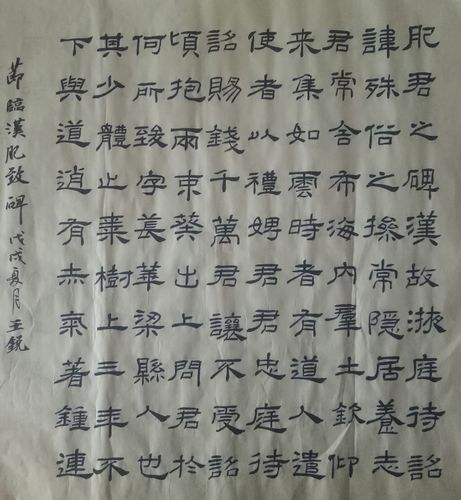 肥君之碑漢故掖庭待詔
諱殊俗之操常隱居養志
君常舍布海内羣土欽仰
来集如雲時者有道人遣
使者以禮娉君君忠庭待
詔賜錢千萬君讓不受詔
頃抱兩束葵出上問君於
何所致字萇華梁縣人也
其少體止棗樹上三年不
下與道逍有赤氣著鍾連
節臨漢肥致碑 戊戌夏月 王銳